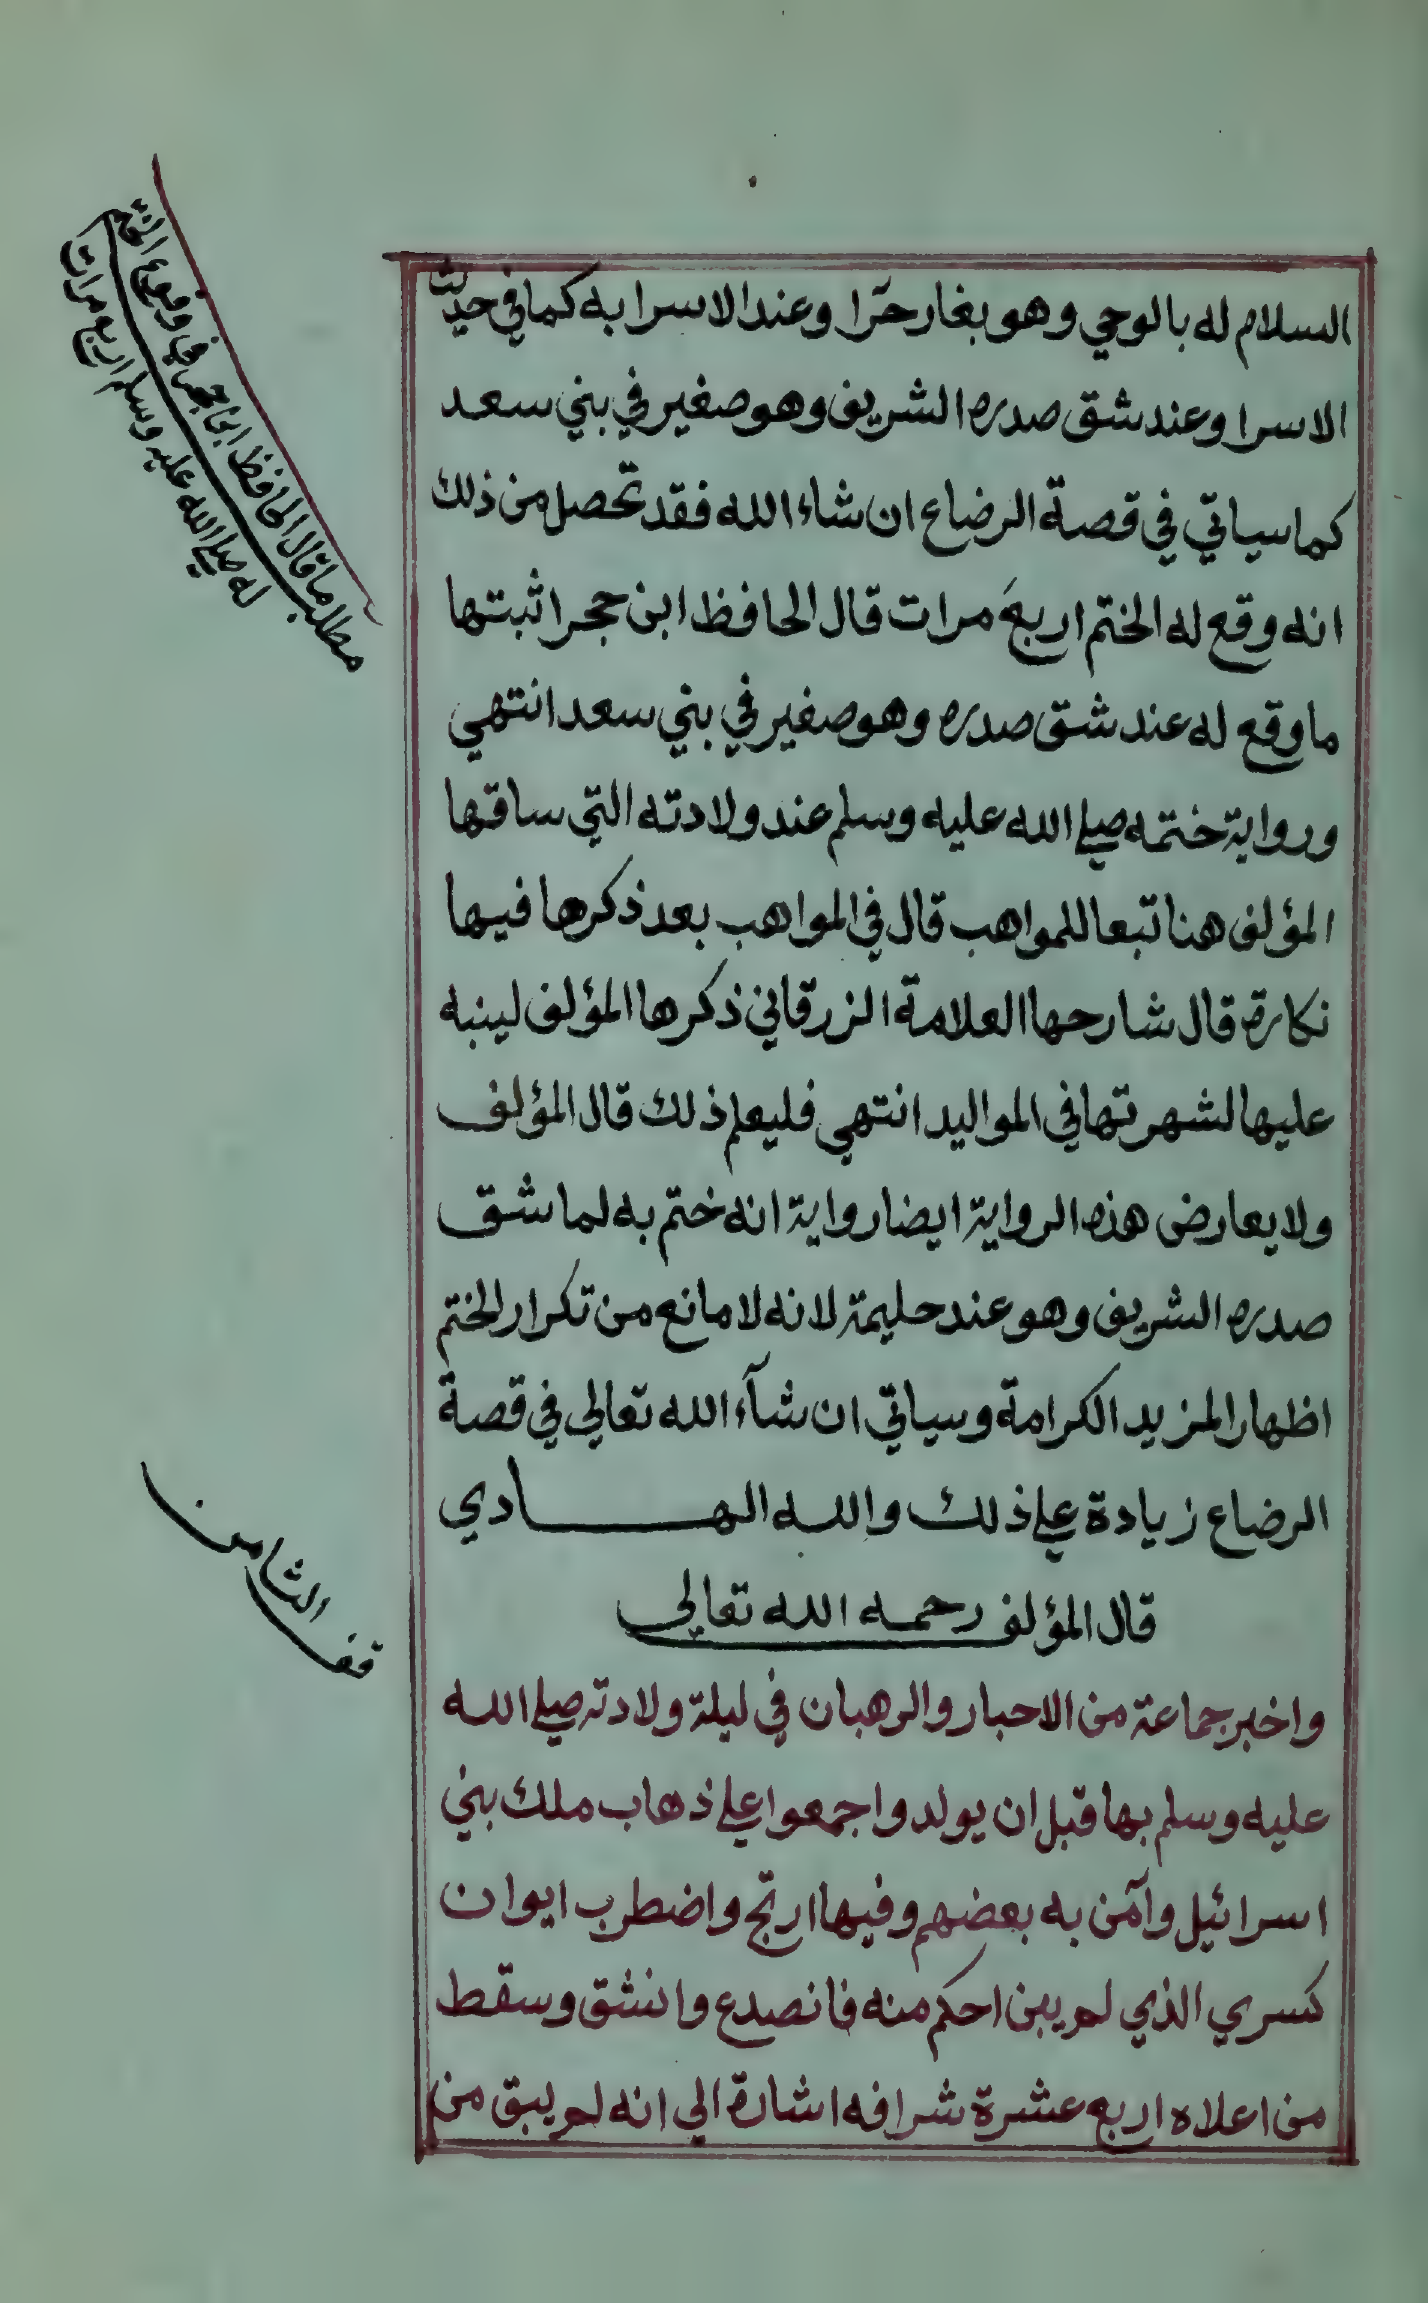 السلام له بالوحي وهو بغار حرا وعند الاسرا به كما في حديث
الاسرا وعند شق صدره الشريف وهو صغير في بني سعد
كما سياتي في قصة الرضاع ان شاء الله فقد تحصل من ذلك
انه وقع له الختم اربع مرات قال الحافظ ابن حجر اثبتها
ما وقع له عند شق صدره وهو صغير في بني سعد انتهي
ورواية ختمه صلي الله عليه وسلم عند ولادته التي ساقها
المؤلف هنا تبعا للمواهب قال في المواهب بعد ذكرها فيها
نكارة قال شارحها العلامة الزرقاني ذكرها المؤلف لينبه
عليها لشهرتها في المواليد انتهي فليعلم ذلك قال المؤلف
ولا يعارض هذه الرواية ايضا رواية انه ختم به لما شق
صدره الشريف وهو عند حليمة لانه لا مانع من تكرار الختم
اظهارا لمزيد الكرامة وسياتي ان شآء الله تعالي في قصة
الرضاع زيادة علي ذلك والله الهادي
قال المؤلف رحمه الله تعالي
واخبر جماعة من الاحبار والرهبان في ليلة ولادته صلي الله
عليه وسلم بها قبل ان يولد واجمعوا علي ذهاب ملك بني
اسرائيل وآمن به بعضهم وفيها ارتج واضطرب ايوان
كسري الذي لم يبن احكم منه فانصدع وانشق وسقط
من اعلاه اربع عشرة شرافه اشارة الي انه لم يبق من
مطلب ما قال الحافظ ابن حجر في وقوع الختم
له صلي الله عليه وسلم اربع مرات
قف الثامن